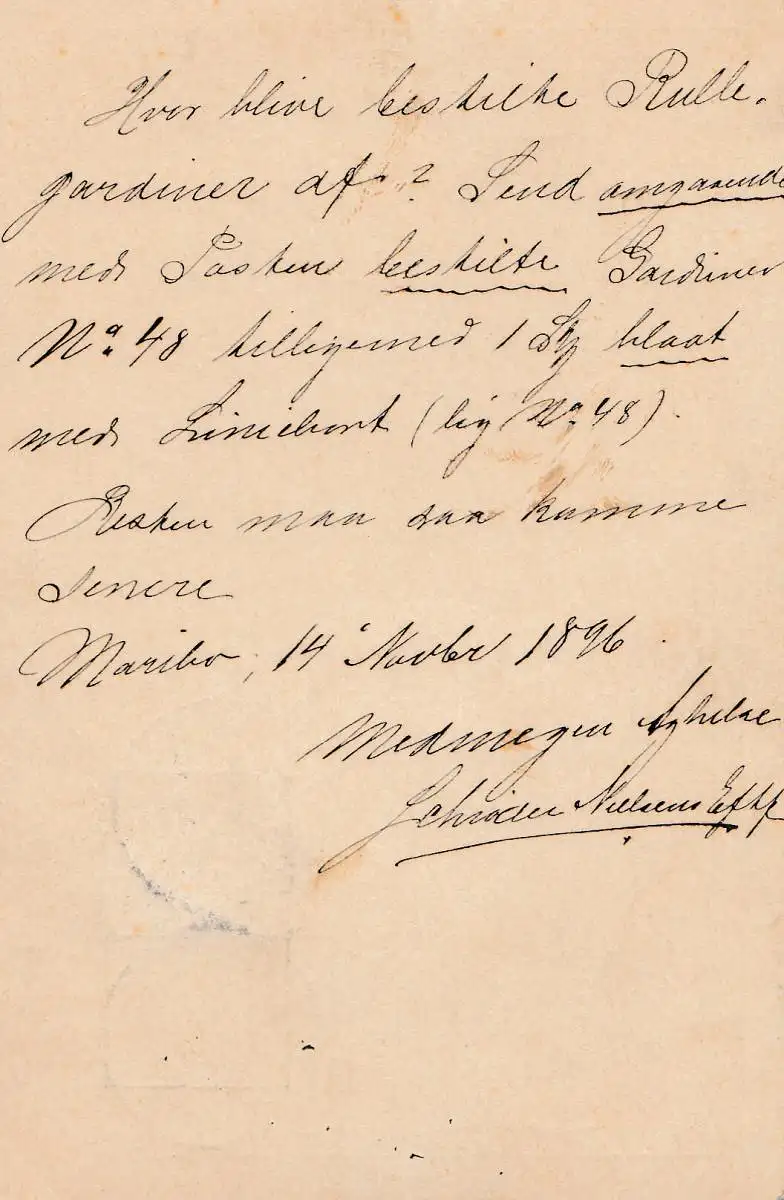 Hvor blive bestilte Rulle-
gardiner af? Send omgaaende
med Posten bestilte Gardiner
No. 48 tilligemed 1 St blaat
med Liniebort (lig No. 48).
Resten maa saa komme
senere
Maribo, 14 Novbr 1896.
Med megen Agtelse
Schrøder Nielsens Eftf